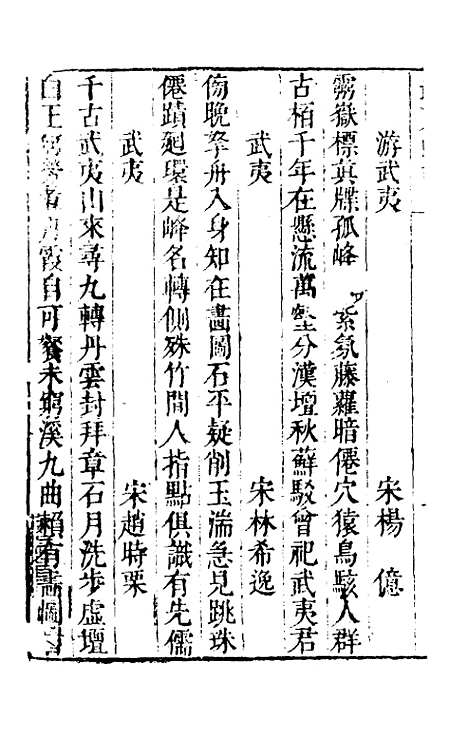 游武夷　宋楊　億
靈嶽標真牒孤峰　紫氛藤蘿暗僊穴猿鳥駭人群
古栢千年在懸流萬壑分漢壇秋蘚駁曾祀武夷君
武夷　宋林希逸
傍晚拏舟入身知在畫圖石平疑削玉湍急見跳珠
僊蹟廻環是峰名轉側殊竹間人指點俱識有先儒
武夷　宋趙時栗
千古武夷山來尋九轉丹雲封拜章石月洗步虛壇
白玉　霞自可餐未窮溪九曲賴有畫圖